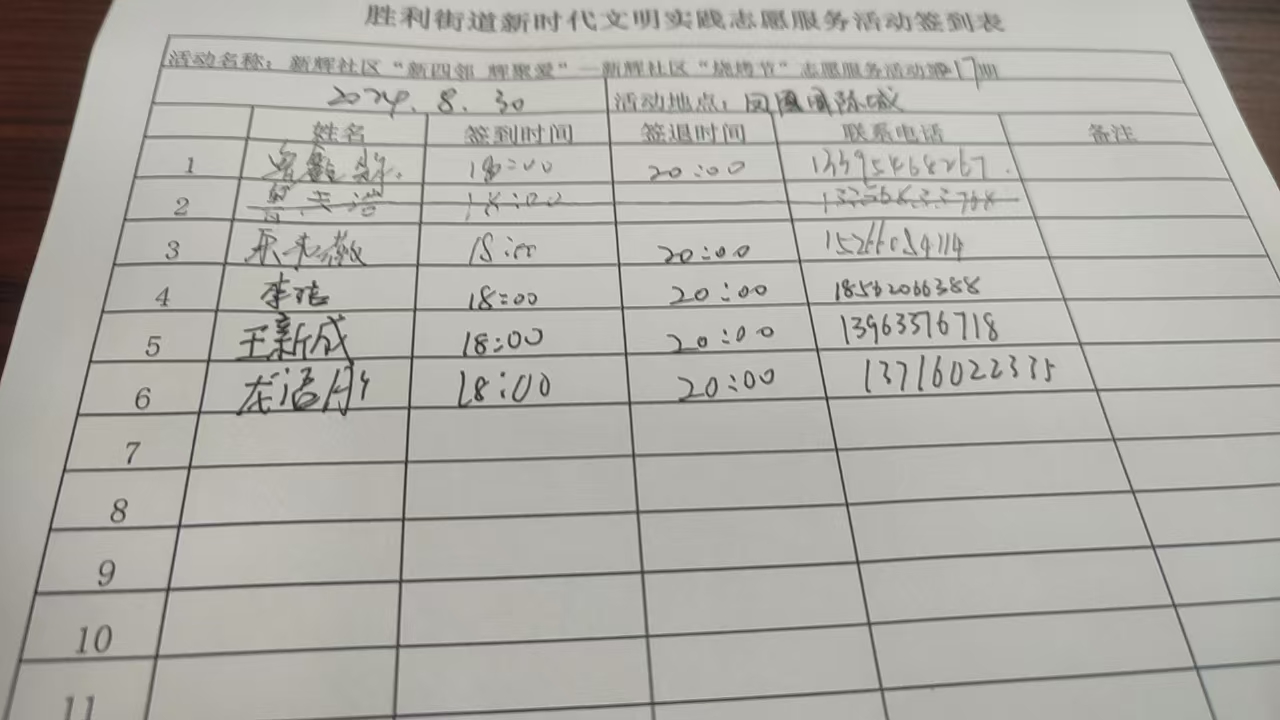 胜利街道新时代文明实践志愿服务活动签到表
活动名称：新辉社区“新四邻 辉聚爱”—新辉社区“烧烤节”志愿服务活动第17期
2024.8.30 活动地点：凤凰
姓名 签到时间 签退时间 联系电话 备注
1 18:00 20:00 13395468267
2 18:00
3 18:00 20:00 15266084114
4 李 18:00 20:00 18562066388
5 王新成 18:00 20:00 13963376718
6 龙洁 18:00 20:00 13716022335
7
8
9
10
11